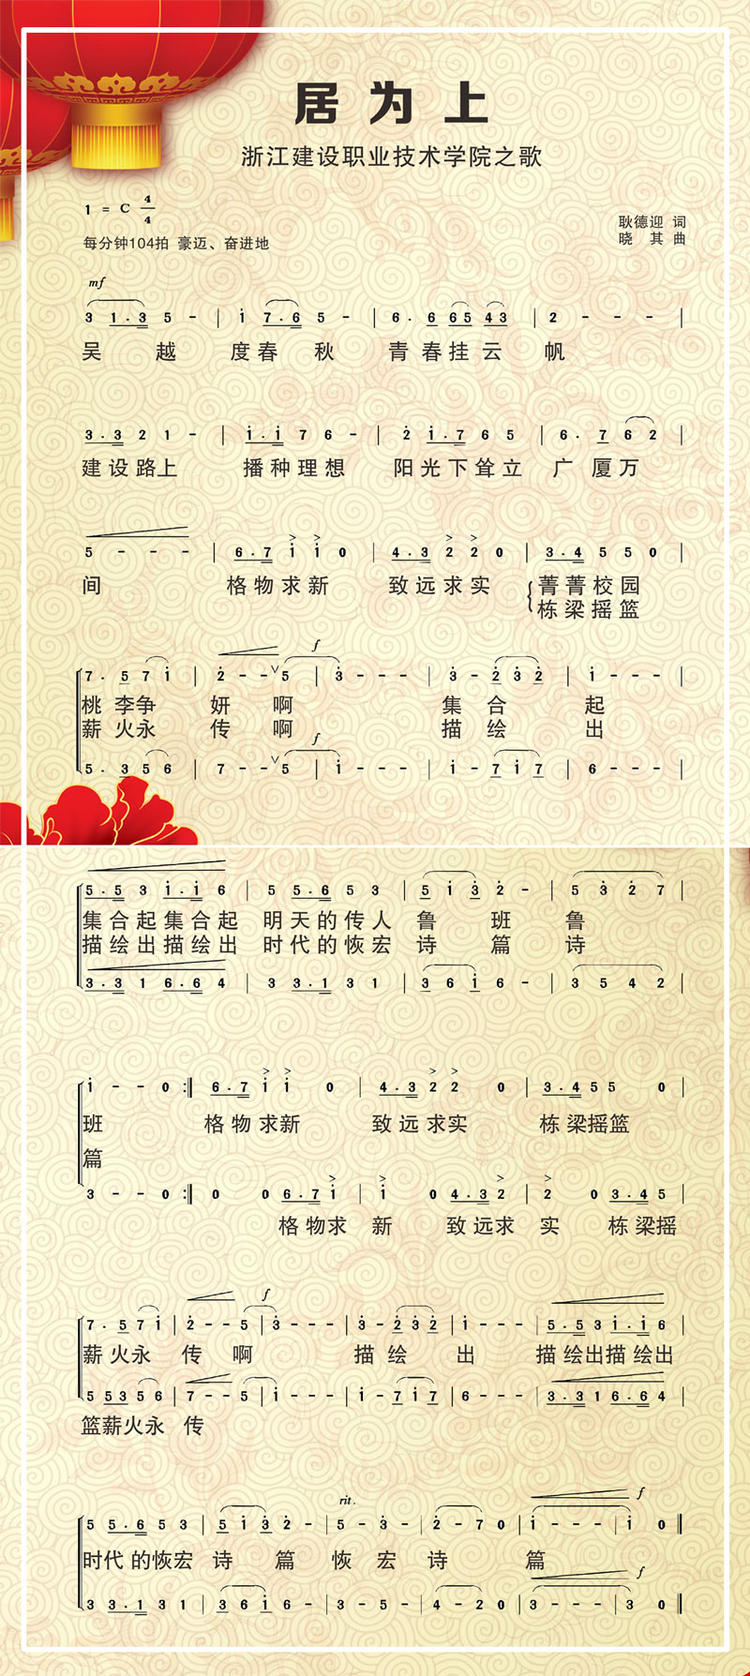 居为上
浙江建设职业技术学院之歌
1 = C 4/4
耿德迎 词
每分钟104拍 豪迈、奋进地
晓 其 曲
mf
3 1·3 5 - | i 7·6 5 - | 6· 6 65 43 | 2 - - - |
吴 越 度春 秋 青春挂云 帆
3·3 2 1 - | i·i 7 6 - | 2 i·7 6 5 | 6· 7 6 2 |
建设路上 播种理想 阳光下耸立 广厦万
5 - - - | 6·7 i i 0 | 4·3 2 2 0 | 3·4 5 5 0 |
间 格物求新 致远求实 菁菁校园
栋梁摇篮
f
7· 5 7 i | 2 - - V 5 | 3 - - - | 3 - 2 3 2 | i - - - |
桃李争 妍 啊 集合 起
薪火永 传 啊 描绘 出
f
5· 3 5 6 | 7 - - V 5 | i - - - | i - 7 i 7 | 6 - - - |
5·5 3 i·i 6 | 5 5·6 5 3 | 5 i 3 2 - | 5 3 2 7 |
集合起集合起 明天的传人 鲁 班 鲁
描绘出描绘出 时代的恢宏 诗 篇 诗
3·3 1 6·6 4 | 3 3·1 3 1 | 3 6 i 6 - | 3 5 4 2 |
i - - 0 :‖ 6·7 i i 0 | 4·3 2 2 0 | 3·4 5 5 0 |
班 格物求新 致远求实 栋梁摇篮
篇
3 - - 0 :‖ 0 0 6·7 i | i 0 4·3 2 | 2 0 3·4 5 |
格物求 新 致远求 实 栋梁摇
f
7· 5 7 i | 2 - - 5 | 3 - - - | 3 - 2 3 2 | i - - - | 5·5 3 i·i 6 |
薪火永 传 啊 描绘 出 描绘出描绘出
5 5 3 5 5 6 | 7 - - 5 | i - - - | i - 7 i 7 | 6 - - - | 3·3 1 6·6 4 |
篮薪火永 传
rit.
f
5 5·6 5 3 | 5 i 3 2 - | 5 - 3 - | 2 - 7 0 | i - - - | i 0 ‖
时代的恢宏 诗 篇 恢 宏 诗 篇
f
3 3·1 3 1 | 3 6 i 6 - | 3 - 5 - | 4 - 2 0 | 3 - - - | 3 0 ‖